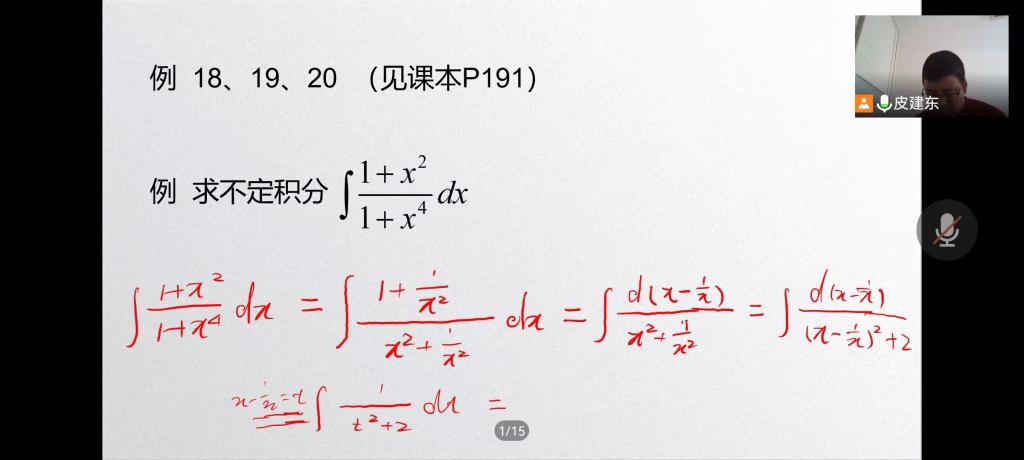 例 18、19、20 （见课本P191）
皮建东
例 求不定积分 ∫ (1+x²)/(1+x⁴) dx
∫ (1+x²)/(1+x⁴) dx = ∫ (1+1/x²)/(x²+1/x²) dx = ∫ d(x-1/x)/(x²+1/x²) = ∫ d(x-1/x)/((x-1/x)²+2)
x-1/x=t ∫ 1/(t²+2) dt =
1/15